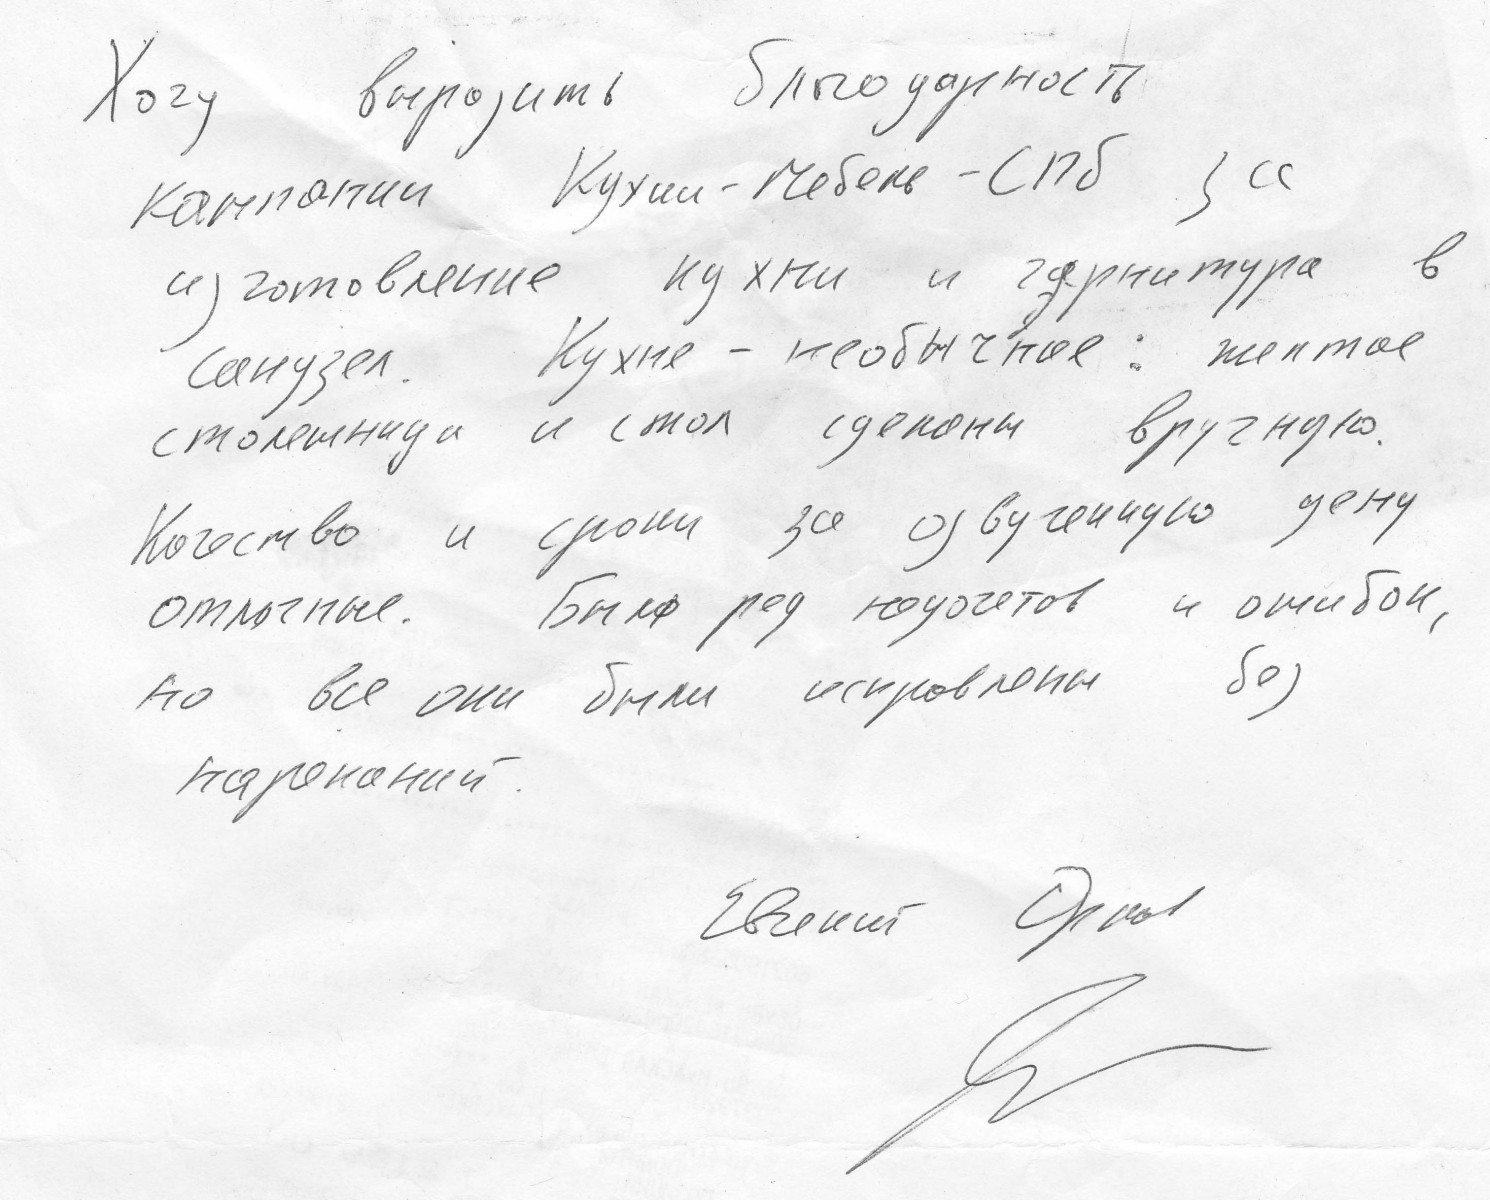 Хочу выразить благодарность
компании Кухни-Мебель-СПб за
изготовление кухни и гарнитура в
санузел. Кухне - необычное: желтое
столешница и стол сделаны вручную.
Качество и сроки за озвученную цену
отличные. Был ряд недочетов и ошибок,
но все они были исправлены без
нареканий.
Евгений